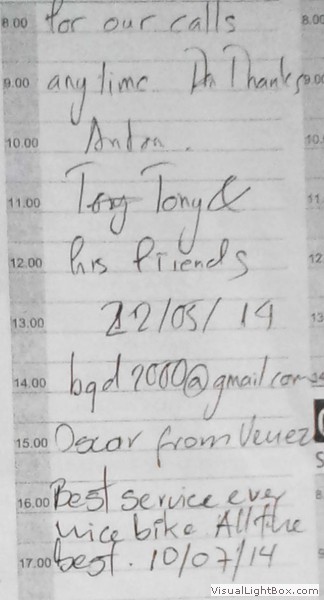 8.00 for our calls 8.00
9.00 any time. Thanks 9.00
10.00 10.
11.00 Tony & 11
12.00 his friends 12
13.00 22/05/14 13
14.00 bgd2000@gmail.com
15.00 Oscar from Venez
16.00 Best service ever
nice bike. All the
17.00 best. 10/07/14
VisualLightBox.com